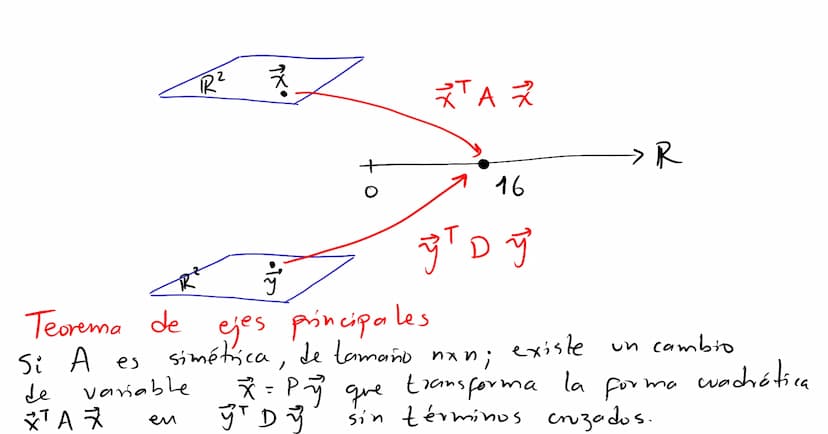 ℝ² x⃗
x⃗ᵀ A x⃗
ℝ
0 16
y⃗ᵀ D y⃗
ℝ² y⃗
Teorema de ejes principales
Si A es simétrica, de tamaño nxn; existe un cambio
de variable x⃗ = P y⃗ que transforma la forma cuadrática
x⃗ᵀ A x⃗ en y⃗ᵀ D y⃗ sin términos cruzados.